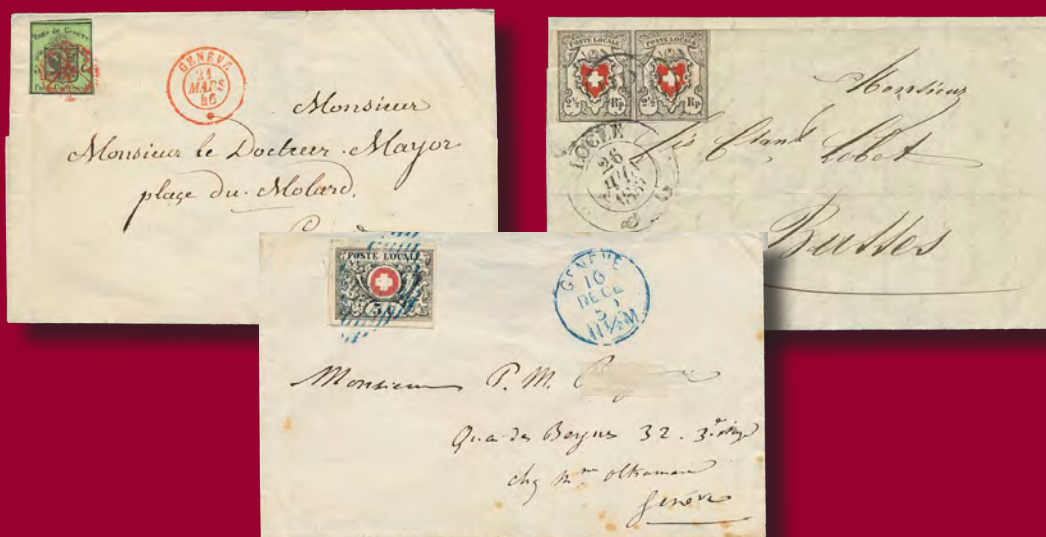 Poste de Genève
GENÈVE
21
MARS
46
Monsieur
Monsieur le Docteur Mayor
place du Molard.
POSTE LOCALE
2½ Rp
POSTE LOCALE
2½ Rp
LOCLE
26
Monsieur
fils
Buttes
POSTE LOCALE
GENÈVE
16
DECE
5
11½M
Monsieur P. M.
Quai des Bergues 32. 3e étage
chez Mme Oltramare
Genève